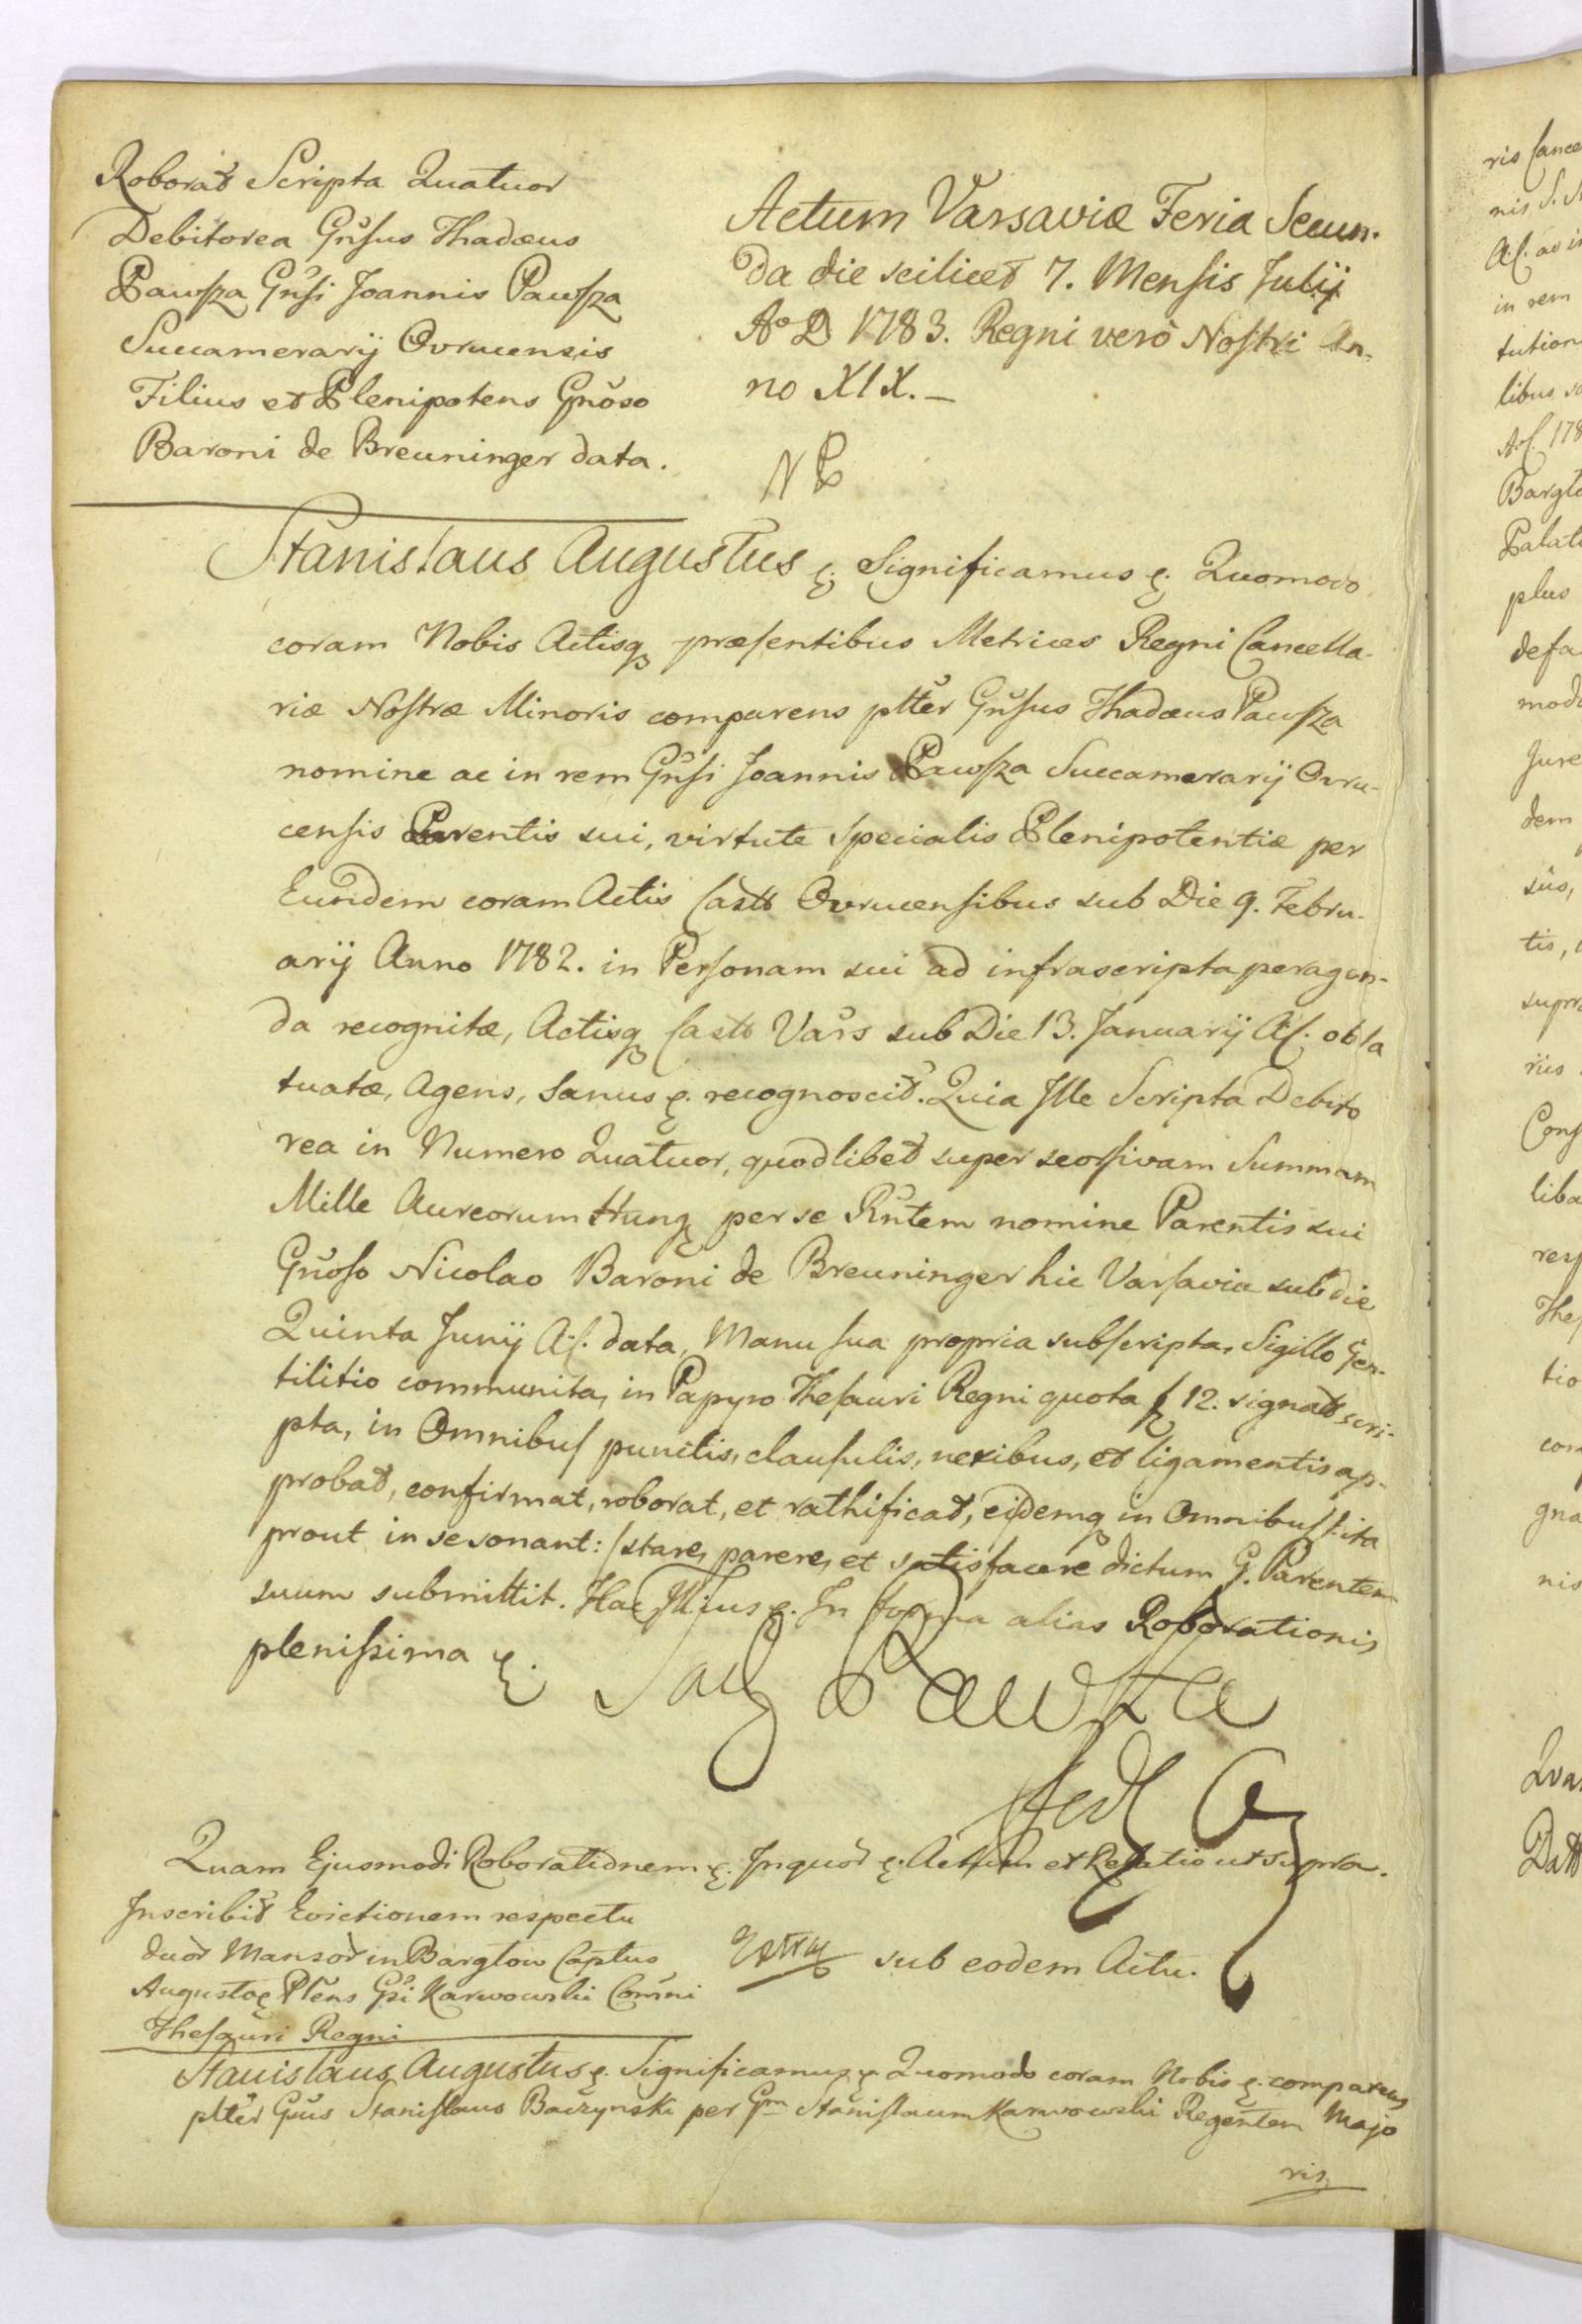 Roborat Scripta Quatuor
Debitorea Gnsus Thadæus
Pawſza Gnsi Joannis Pawſza
Succamerarij Ovrucensis
Filius et Plenipotens Gnoso
Baroni de Breuninger data.
Actum Varsaviæ Feria Secun-
da die scilicet 7. Mensis Julij
Aº D 1783. Regni verò Noſtri An-
no XIX. —
NP
Stanislaus Augustus ę. Significamus ę. Quomodo
coram Nobis Actisq præsentibus Metrices Regni Cancella-
riæ Noſtræ Minoris comparens plter Gnſus Thadæus Pawſza
nomine ac in rem Gnſi Joannis Pawſza Succamerarij Ovru-
censis Parentis sui, virtute specialis Plenipotentiæ per
Eundem coram Actis Castr Ovrucenſibus sub Die 9. Febru-
arij Anno 1782. in Perſonam sui ad infrascripta peragen-
da recognitæ, Actisq Castr Vars sub Die 13. Januarij A.C. obla
tuatæ, Agens, Sanus ę. recognoscit. Quia Ille Scripta Debito
rea in Numero Quatuor, quodlibet super seorſivam Summam
Mille Aureorum Hung per se Rntem nomine Parentis sui
Gnoſo Nicolao Baroni de Breuninger hic Varſaviæ sub die
Quinta Junij A.C. data, Manu ſua propria subſcripta, Sigillo Gen-
tilitio communita, in Papyro Theſauri Regni quota f 12. signat scri-
pta, in Omnibuſ punctis, clauſulis, nexibus, et ligamentis ap-
probat, confirmat, roborat, et rathificat, eisdemq in Omnibuſ /:ita
prout in se sonant:/ stare, parere, et satisfacere dictum G. Parentem
suum submittit. Hac Illius ę. In forma alias Roborationis
pleniſsima ę.
Pawſza
Quam Ejusmodi Roborationem ę. Inquor ę. Actum et Relatio ut supra.
Inscribit Evictionem respectu
duor Mansor in Bargłow Captus
Augustoę Plens Gsi Karwowski Comni
Theſauri Regni
sub eodem Actu.
Stanislaus Augustus ę. Significamus ę. Quomodo coram Nobis ę. comparens
plter Gnus Staniſlaus Baczynski per Gm Staniſlaum Karwowski Regentem Majo
ris